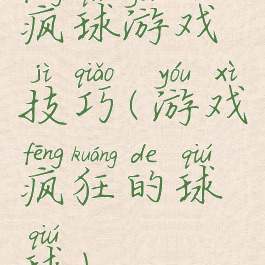 疯球游戏
jì qiǎo yóu xì
技巧(游戏
fēng kuáng de qiú
疯狂的球
qiú
球)